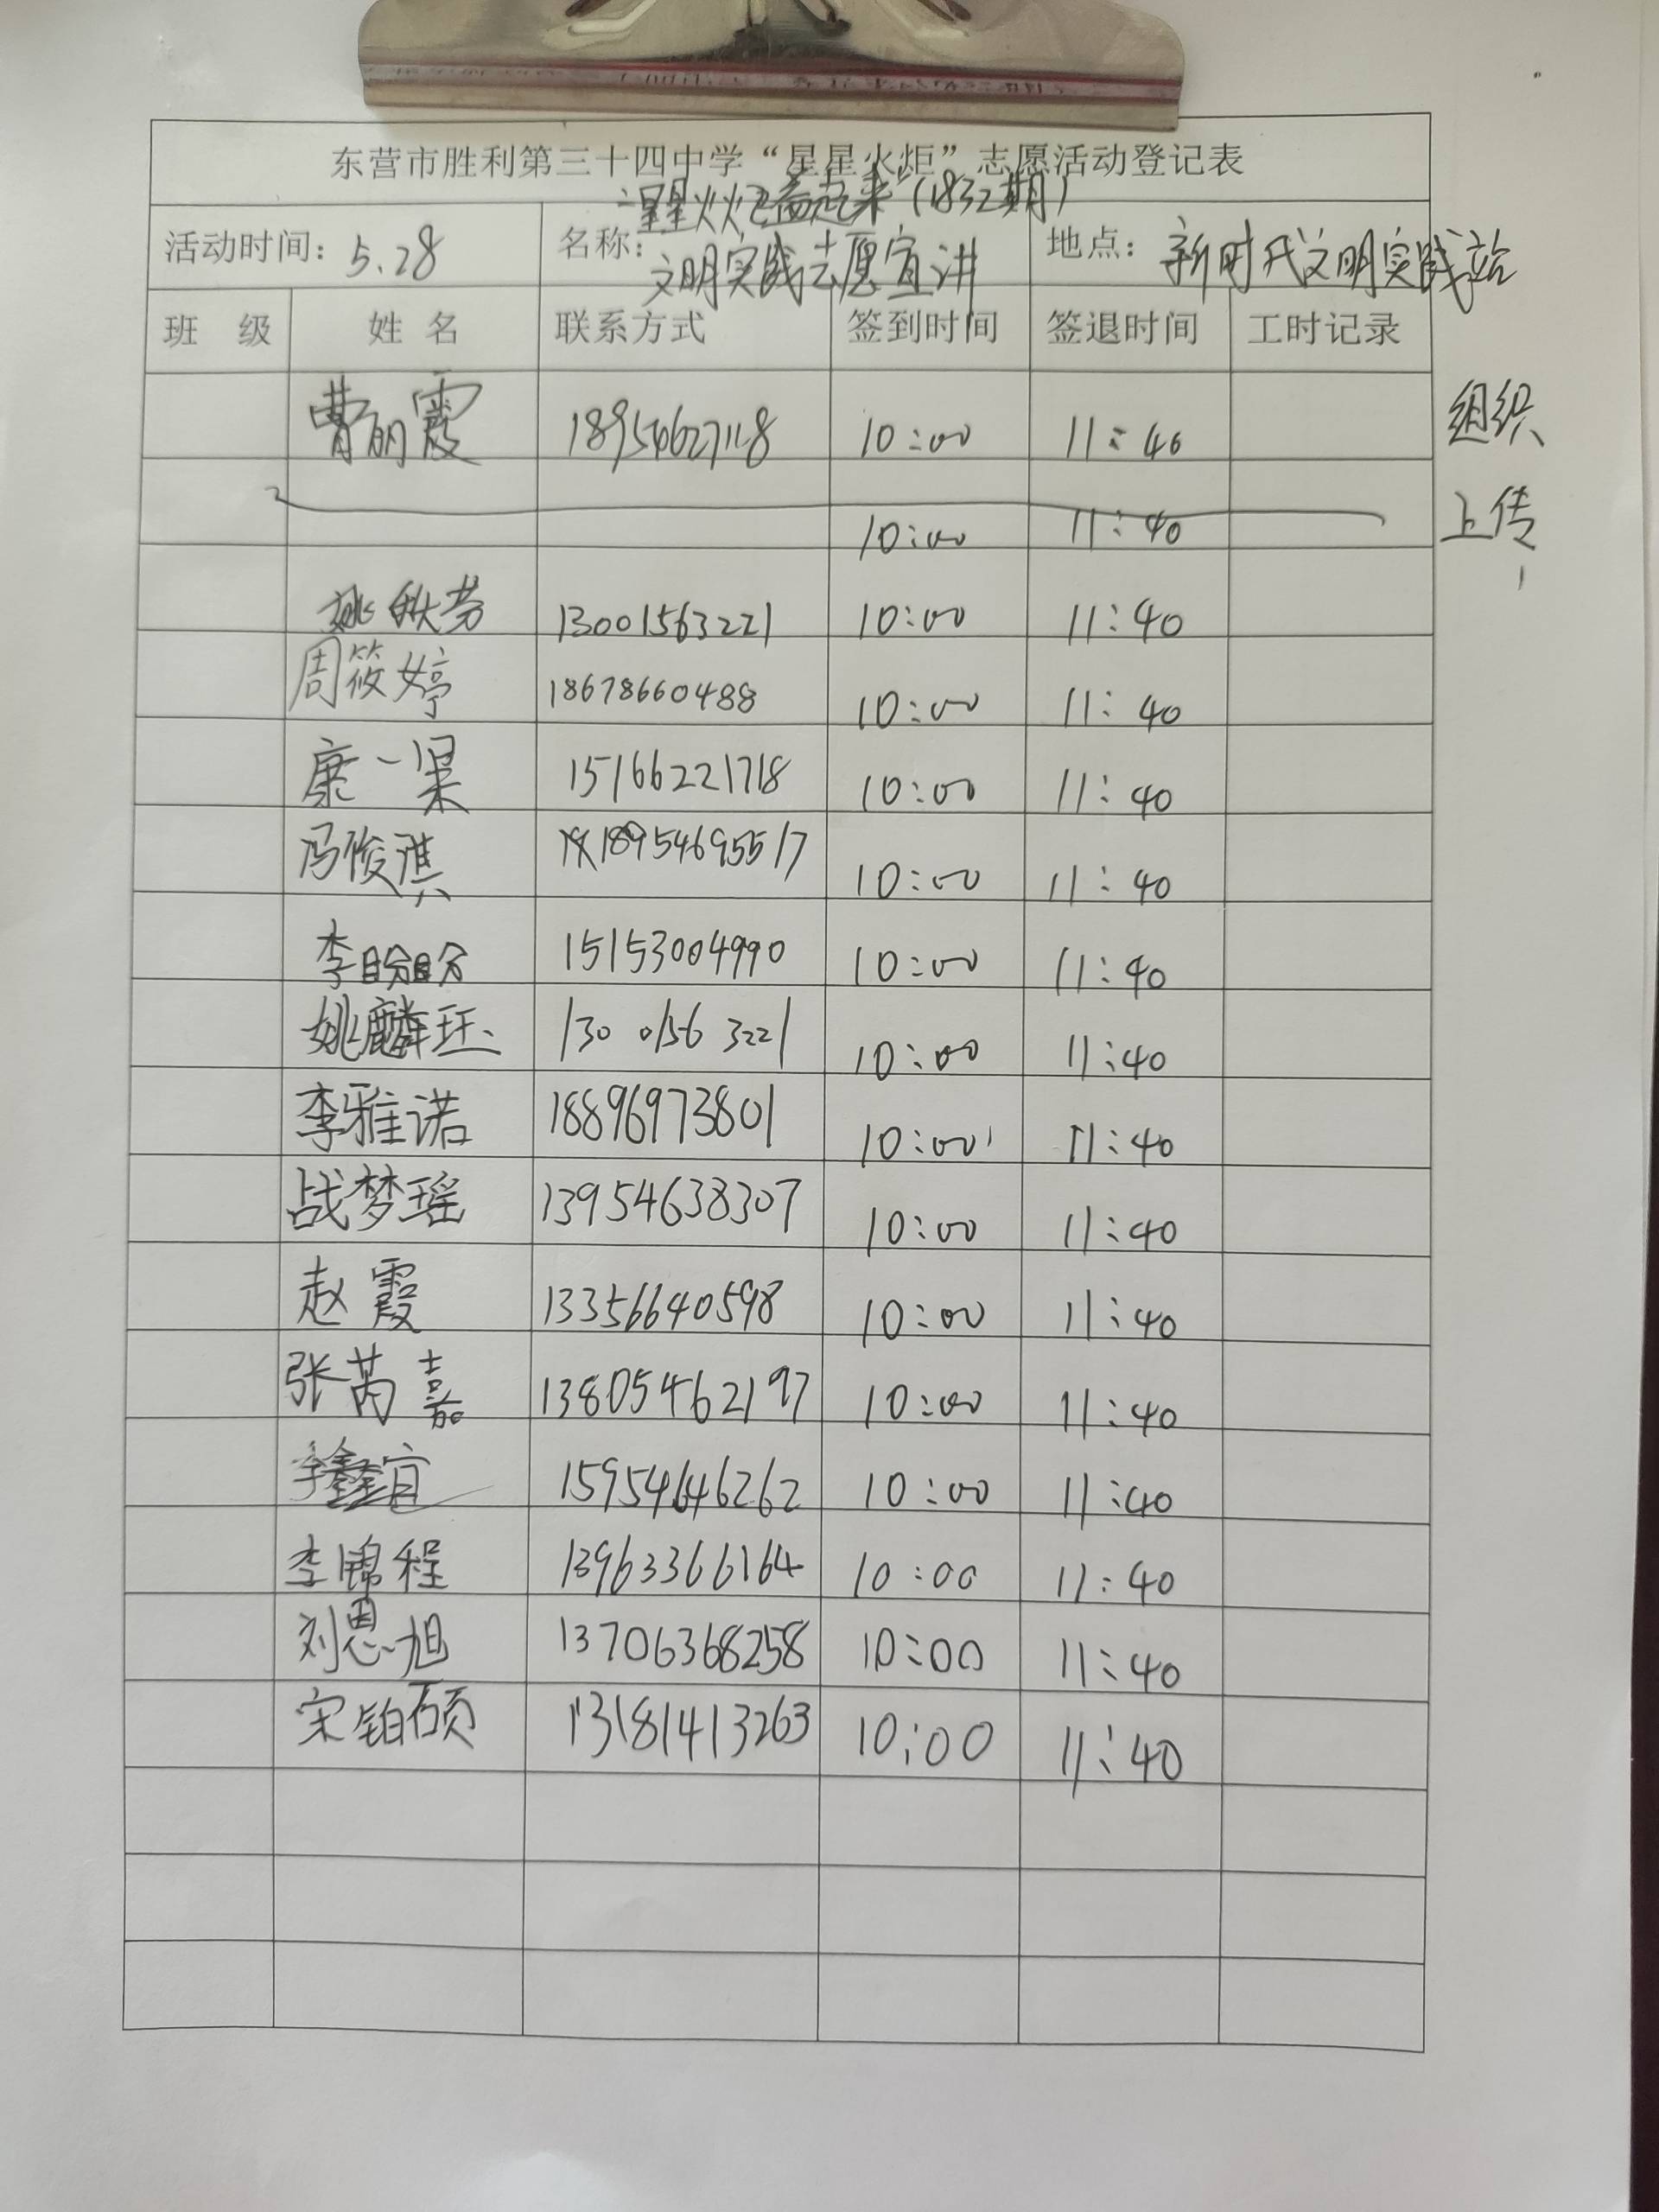 东营市胜利第三十四中学“星星火炬”志愿活动登记表
活动时间: 5.28 名称: “星星火炬益起来”(1832期) 文明实践志愿宣讲 地点: 新时代文明实践站
班 级 姓 名 联系方式 签到时间 签退时间 工时记录
曹丽霞 18954627118 10:00 11:40 组织
10:00 11:40 上传
姚秋芳 13001563221 10:00 11:40
周筱婷 18678660488 10:00 11:40
康一杲 15166221718 10:00 11:40
冯俊淇 18954695517 10:00 11:40
李盼盼 15153004990 10:00 11:40
姚麟珏 130 0156 3221 10:00 11:40
李雅诺 18896973801 10:00 11:40
战梦瑶 13954638307 10:00 11:40
赵霞 13356640598 10:00 11:40
张芮嘉 13805462197 10:00 11:40
李鑫宜 15954646262 10:00 11:40
李锦程 13963366164 10:00 11:40
刘恩旭 13706368258 10:00 11:40
宋铂硕 13181413263 10:00 11:40